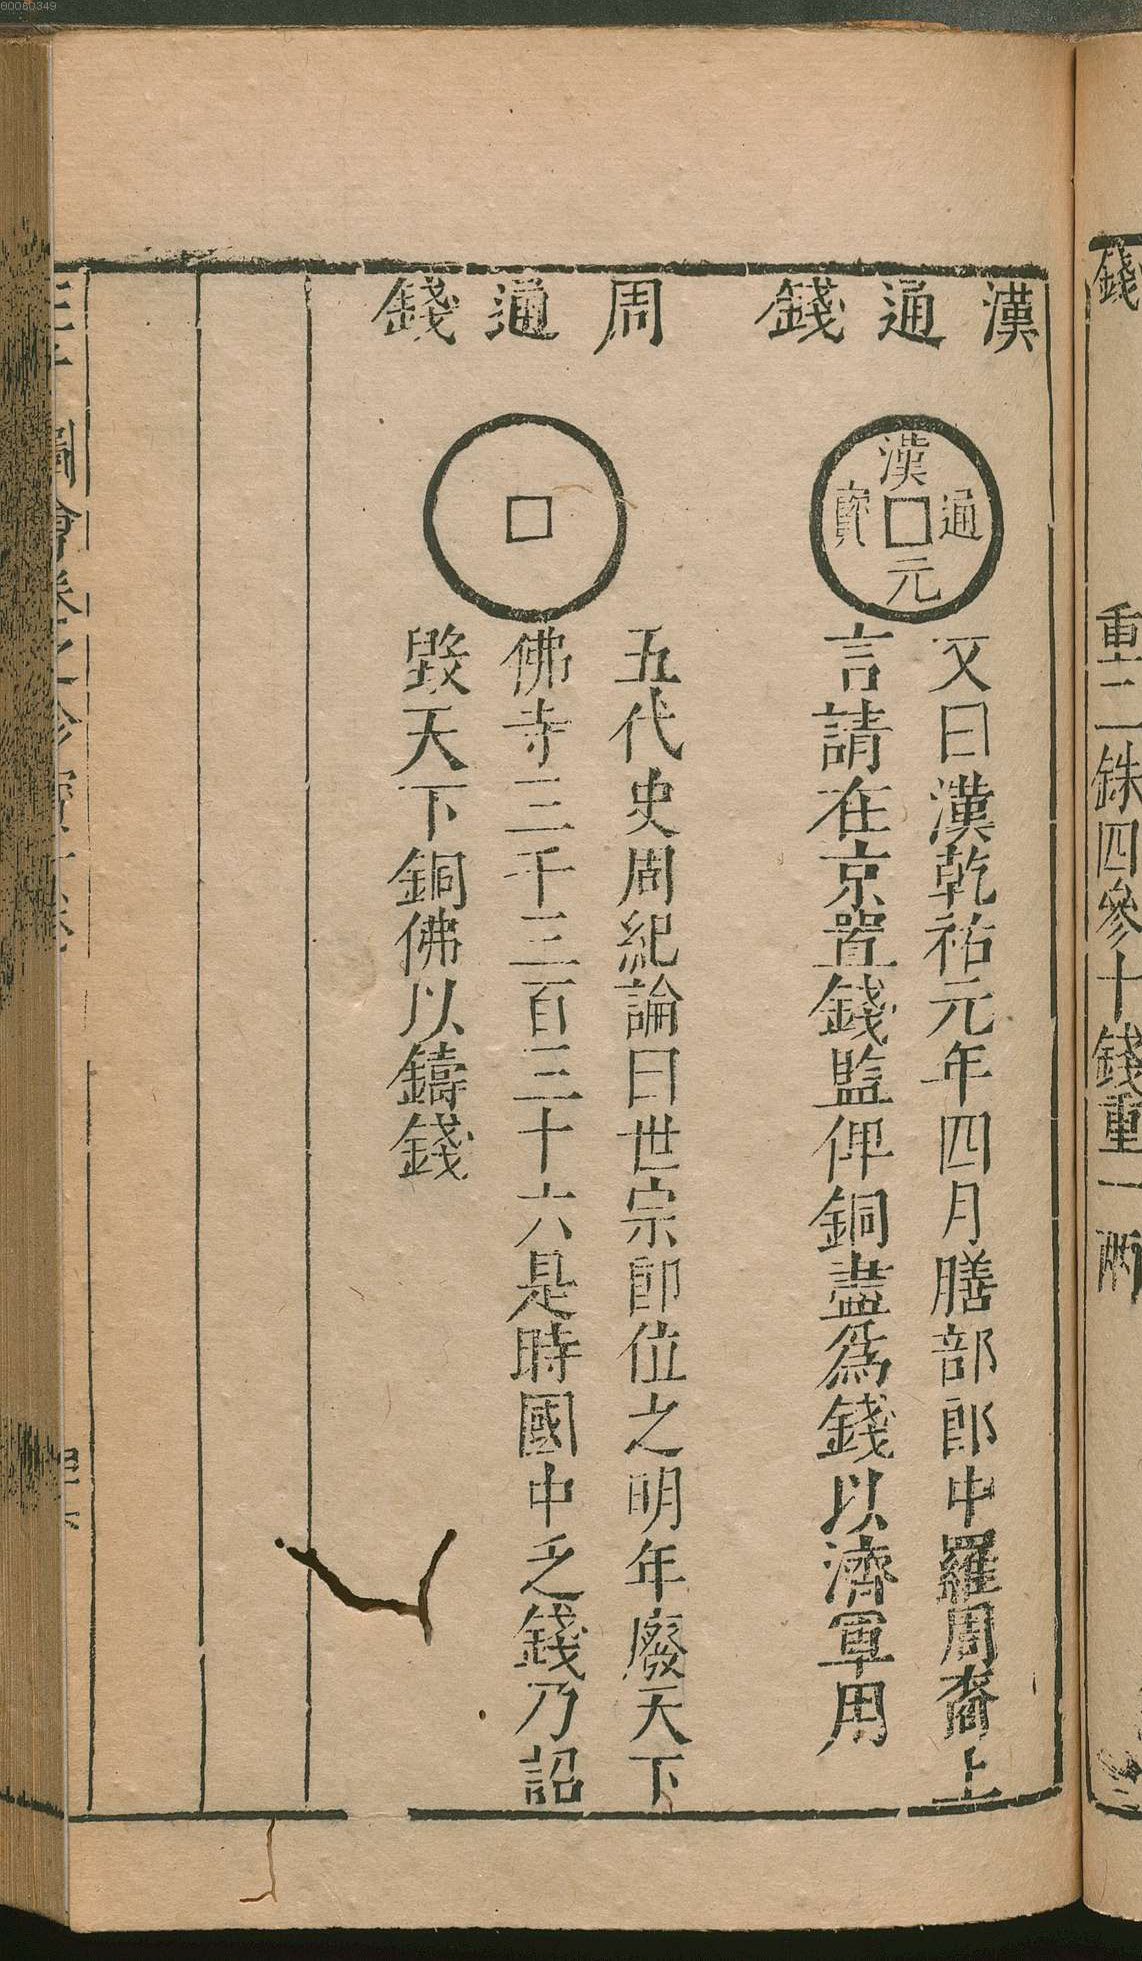 錢
重二銖四參十錢重一兩
漢通錢
漢通元寶
又曰漢乾祐元年四月膳部郎中羅周裔上
言請在京置錢監俾銅盡爲錢以濟軍用
周通錢
五代史周紀論曰世宗即位之明年廢天下
佛寺三千三百三十六是時國中乏錢乃詔
毀天下銅佛以鑄錢
圖會
00060349